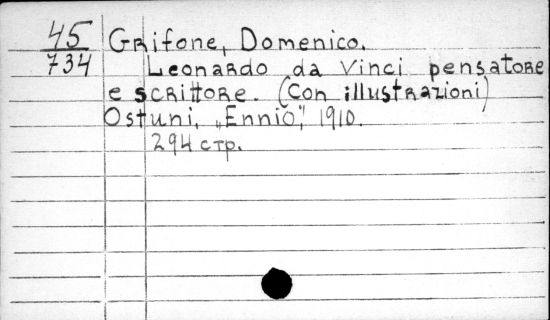 45
734
Grifone, Domenico.
Leonardo da Vinci pensatore
e scrittore. (Con illustrazioni)
Ostuni, „Ennio", 1910.
294 стр.